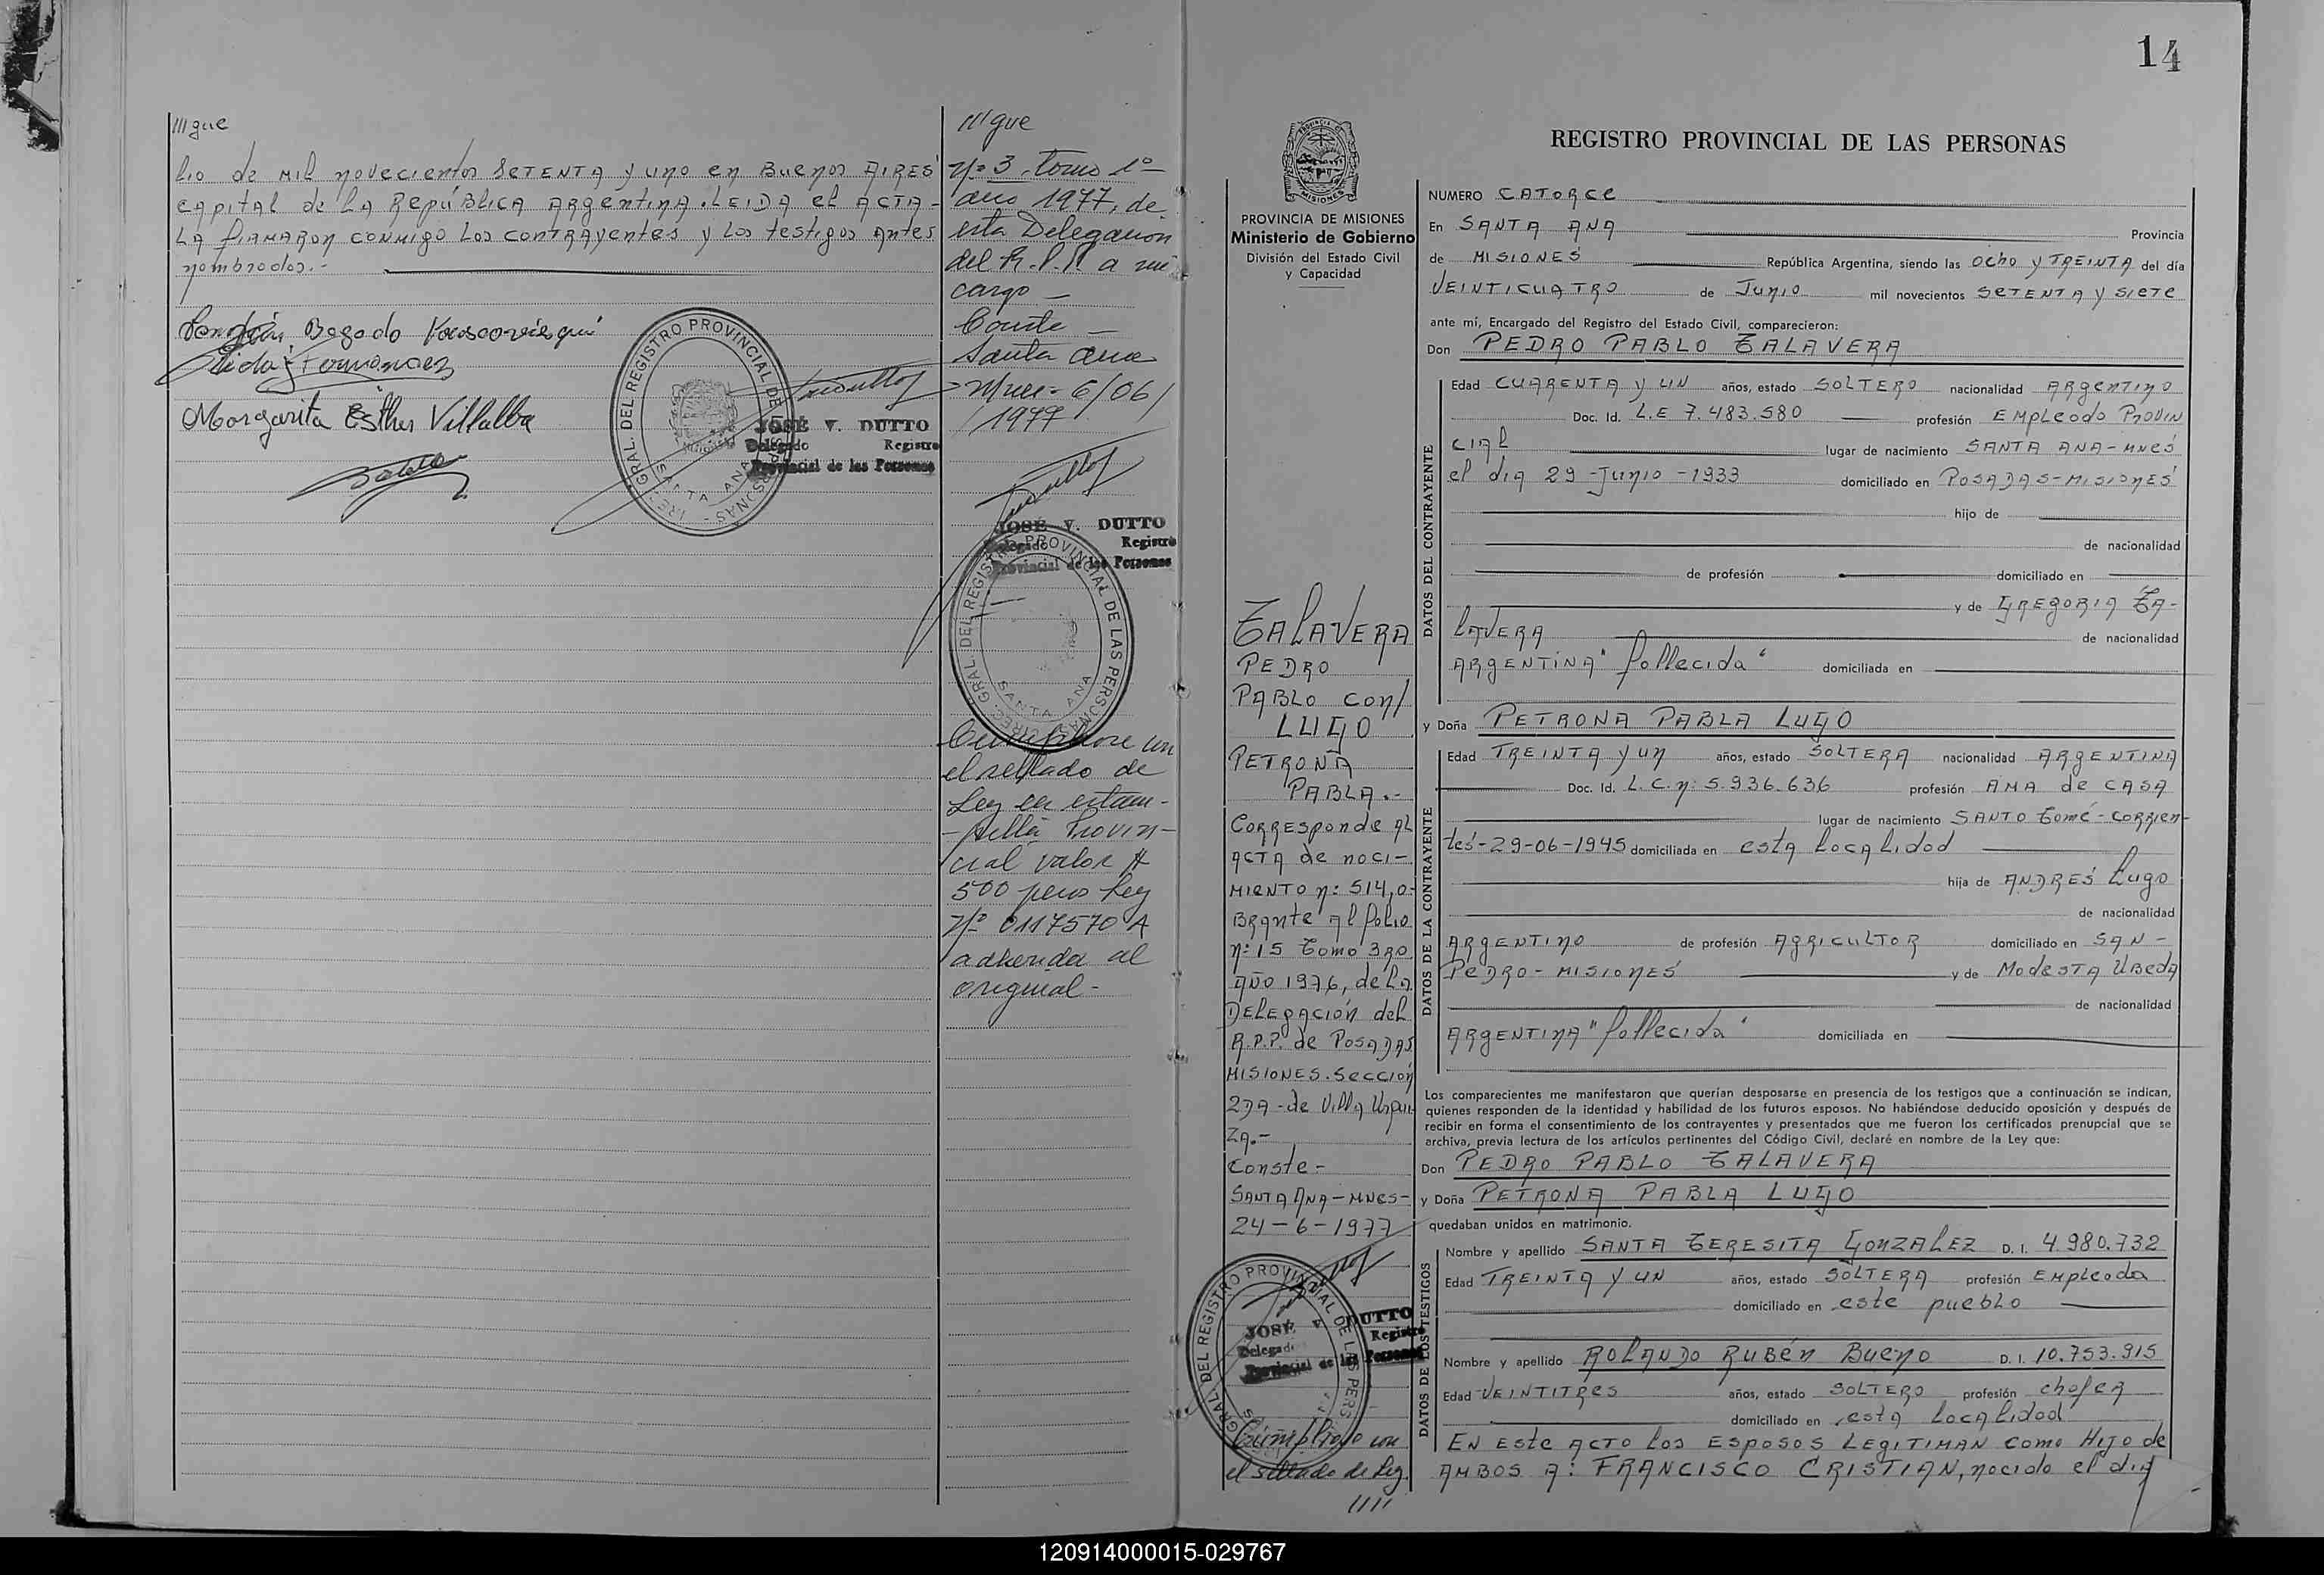 ////gue
lio de mil novecientos SETENTA y uno en Buenos AIRES
CAPITAL de LA REPÚBLICA ARGENTINA. LEIDA el ACTA-
LA FIRMARON CONMIGO Los CONTRAYENTES y Los testigos Antes
nombrados.-
Begado
Fernandez
Margarita Esther Villalba
DIREC. GRAL. DEL REGISTRO PROVINCIAL DE LAS PERSONAS - SANTA ANA
JOSÉ V. DUTTO
Delegado Registro
Provincial de las Personas
////gue
Nº 3. Tomo 1º-
año 1977, de
esta Delegacion
del R.P.P. a mi
cargo -
Conste -
Santa Ana
Mnes- 6/06/
1977
JOSÉ V. DUTTO
Delegado Registro
Provincial de las Personas
DIREC. GRAL. DEL REGISTRO PROVINCIAL DE LAS PERSONAS
SANTA ANA
el sellado de
Ley en estam-
-pilla Provin-
cial valor $
500 peso Ley
Nº 0117570 A
adherida al
original-
14
PROVINCIA DE MISIONES
Ministerio de Gobierno
División del Estado Civil
y Capacidad
TALAVERA
PEDRO
PABLO con/
LUGO
PETRONA
PABLA.-
CORRESPONDE AL
ACTA de naci-
MIENTO n: 514, o-
BRANTE Al folio
n: 15 Tomo 3RO
AÑO 1976, de LA
DELEGACIÓN del
R.P.P. de POSADAS
MISIONES. Sección
2DA - de Villa Urqui-
ZA.-
Conste-
SANTA ANA - MNES-
24-6-1977
GRAL. DEL REGISTRO PROVINCIAL DE LAS PERS
JOSÉ V. DUTTO
Delegado Registro
Provincial de las Personas
Cumplido con
el sellado de Ley.
////
REGISTRO PROVINCIAL DE LAS PERSONAS
NUMERO CATORCE
En SANTA ANA Provincia
de MISIONES República Argentina, siendo las Ocho y TREINTA del día
VEINTICUATRO de Junio mil novecientos SETENTA y SIETE
ante mí, Encargado del Registro del Estado Civil, comparecieron:
Don PEDRO PABLO TALAVERA
DATOS DEL CONTRAYENTE
Edad CUARENTA y UN años, estado SOLTERO nacionalidad ARGENTINO
Doc. Id. L.E 7.483.580 profesión EMPLEADO PROVIN
CIAL lugar de nacimiento SANTA ANA-MNES
el dia 29-Junio-1933 domiciliado en POSADAS-MISIONES
hijo de
de nacionalidad
de profesión domiciliado en
y de GREGORIA TA-
LAVERA de nacionalidad
ARGENTINA "fallecida" domiciliada en
y Doña PETRONA PABLA LUGO
DATOS DE LA CONTRAYENTE
Edad TREINTA y UN años, estado SOLTERA nacionalidad ARGENTINA
Doc. Id. L.C.n: 5.936.636 profesión AMA de CASA
lugar de nacimiento SANTO Tomé-CORRIEN-
tes-29-06-1945 domiciliada en esta localidad
hija de ANDRÉS Lugo
de nacionalidad
ARGENTINO de profesión AGRICULTOR domiciliado en SAN-
PEDRO-MISIONES y de MODESTA UBEDA
de nacionalidad
ARGENTINA "fallecida" domiciliada en
Los comparecientes me manifestaron que querían desposarse en presencia de los testigos que a continuación se indican,
quienes responden de la identidad y habilidad de los futuros esposos. No habiéndose deducido oposición y después de
recibir en forma el consentimiento de los contrayentes y presentados que me fueron los certificados prenupcial que se
archiva, previa lectura de los artículos pertinentes del Código Civil, declaré en nombre de la Ley que:
Don PEDRO PABLO TALAVERA
y Doña PETRONA PABLA LUGO
quedaban unidos en matrimonio.
DATOS DE LOS TESTIGOS
Nombre y apellido SANTA TERESITA GONZALEZ D. I. 4.980.732
Edad TREINTA y UN años, estado SOLTERA profesión EMPLEADA
domiciliado en este pueblo
Nombre y apellido ROLANDO RUBÉN BUENO D. I. 10.753.915
Edad VEINTITRES años, estado SOLTERO profesión chofer
domiciliado en esta localidad
EN ESTE ACTO los ESPOSOS LEGITIMAN COMO HIJO de
AMBOS A: FRANCISCO CRISTIAN, nacido el dia
120914000015-029767